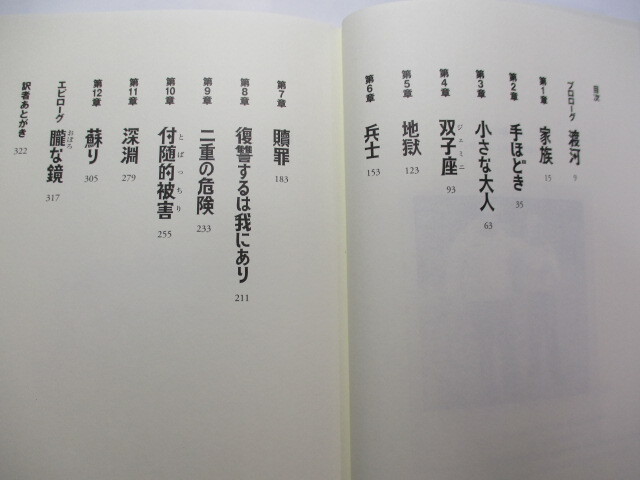 目次
プロローグ 渡河 9
第1章 家族 15
第2章 手ほどき 35
第3章 小さな大人 63
第4章 双子座 ジェミニ 93
第5章 地獄 123
第6章 兵士 153
第7章 贖罪 183
第8章 復讐するは我にあり 211
第9章 二重の危険 233
第10章 付随的被害 とばっちり 255
第11章 深淵 279
第12章 蘇り 305
エピローグ 朧な鏡 おぼろ 317
訳者あとがき 322